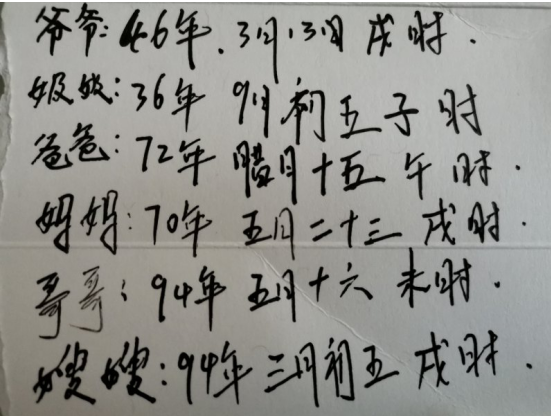 爷爷:46年.3月13日戌时.
奶奶:36年 9月初五子时
爸爸:72年 腊月十五午时.
妈妈:70年 五月二十三戌时.
哥哥:94年 五月十六未时.
嫂嫂:94年三月初五戌时.